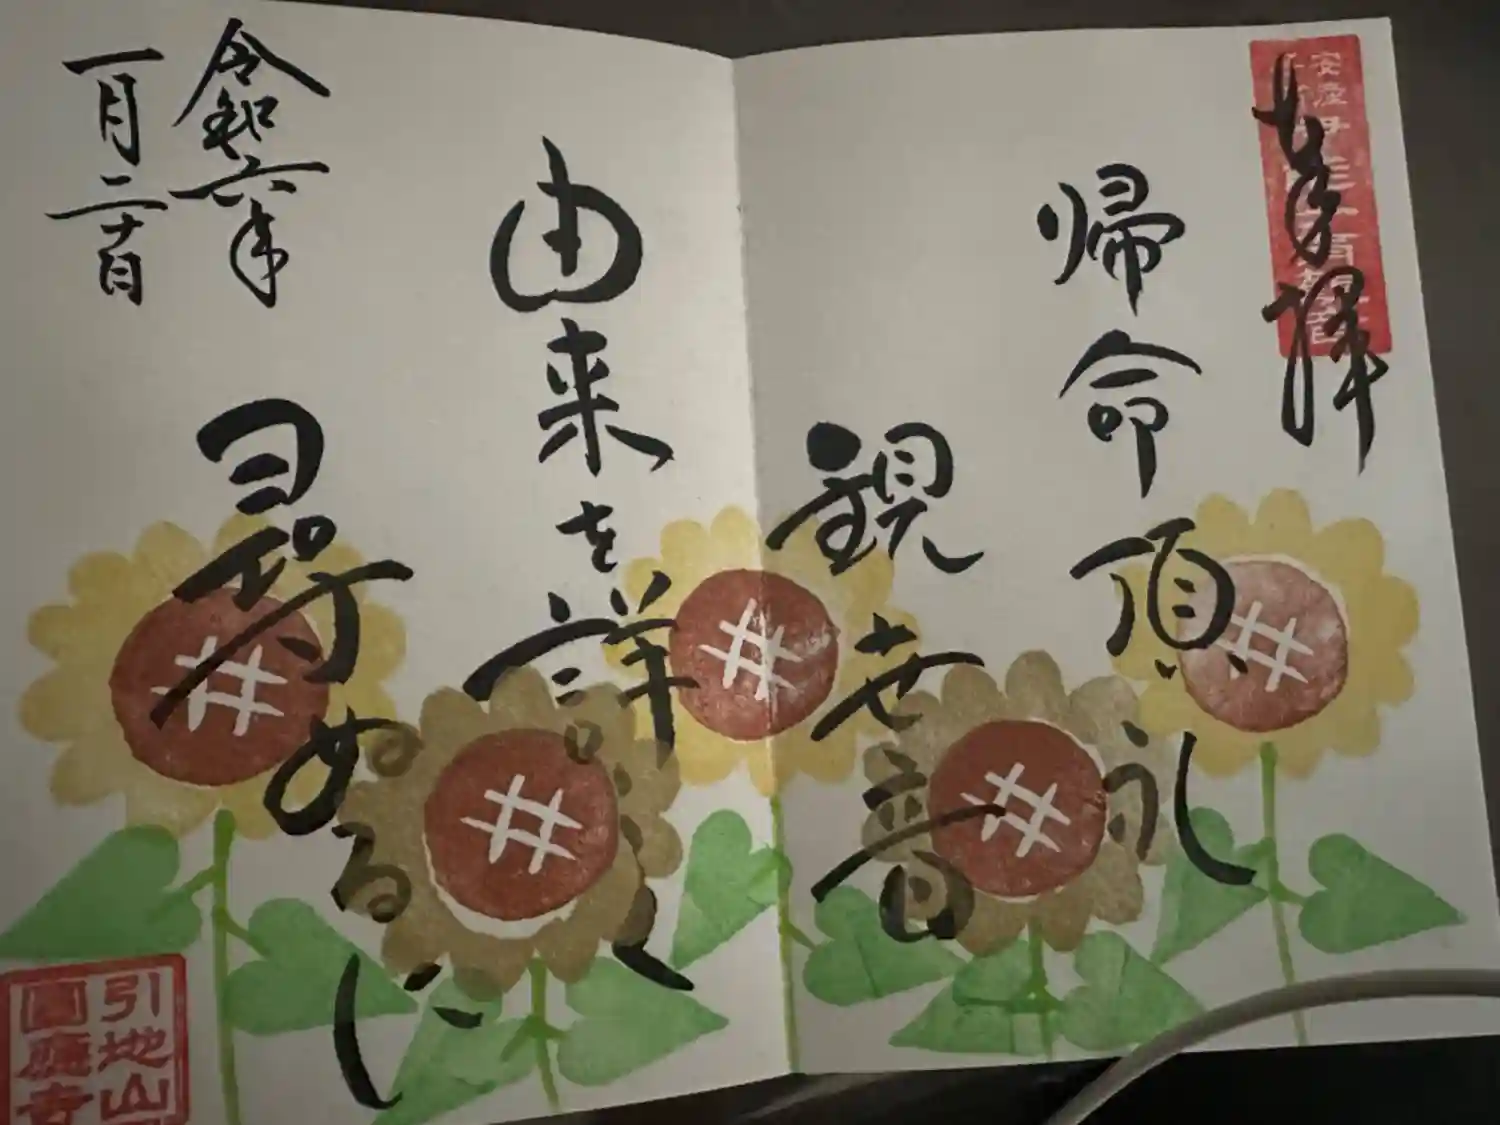 奉拝
帰命頂礼
観世音
由来を詳しく
尋ぬるに
令和六年
一月二十日
引地山
圓應寺